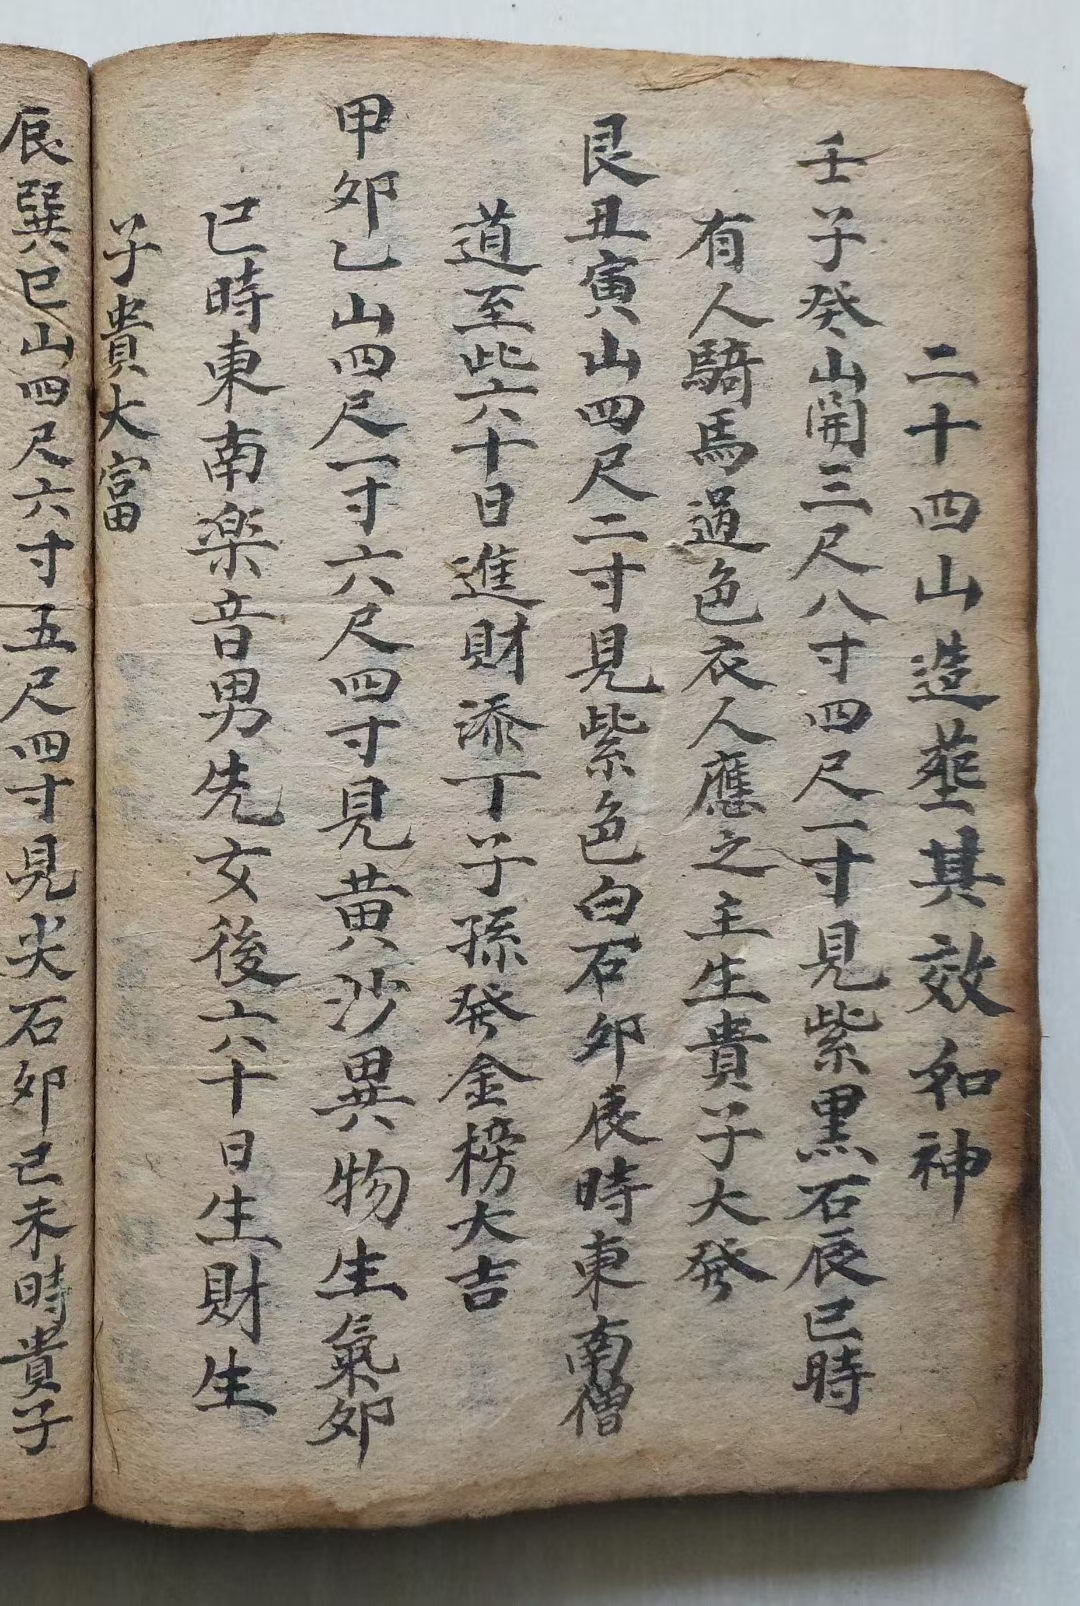 二十四山造塟其效和神
壬子癸山開三尺八寸四尺一寸見紫黒石辰巳時
有人騎馬過色衣人應之主生貴子大發
艮丑寅山四尺二寸見紫色白石卯辰時東南僧
道至此六十日進財添丁子孫發金榜大吉
甲卯乙山四尺一寸六尺四寸見黄沙異物生氣卯
巳時東南楽音男先女後六十日生財生
子貴大富
辰巽巳山四尺六寸五尺四寸見尖石卯巳未時貴子